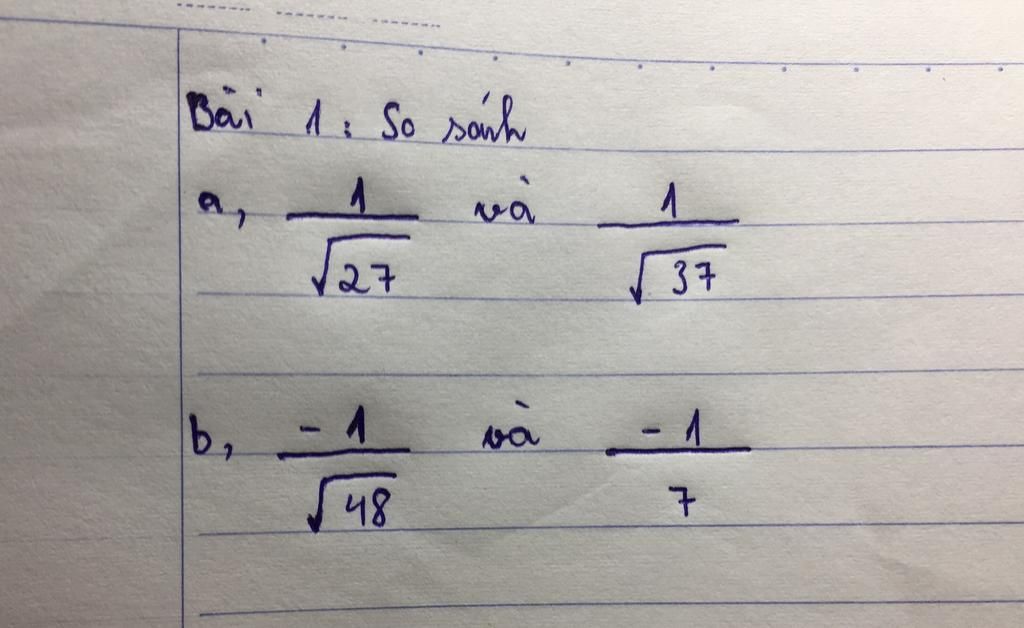 Bài 1 : So sánh
a, 1/√27 và 1/√37
b, -1/√48 và -1/7